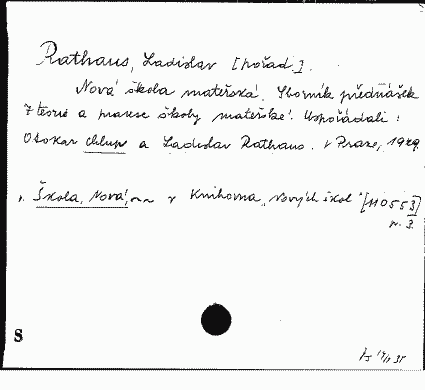 Rathaus, Ladislav [pořad.].
Nová škola mateřská. Sborník přednášek
z teorie a praxe školy mateřské. Uspořádali:
Otokar Chlup a Ladislav Rathaus. V Praze, 1929.
v. Škola, Nová, v Knihovna „Nových škol" [110553]
n. 3.
S